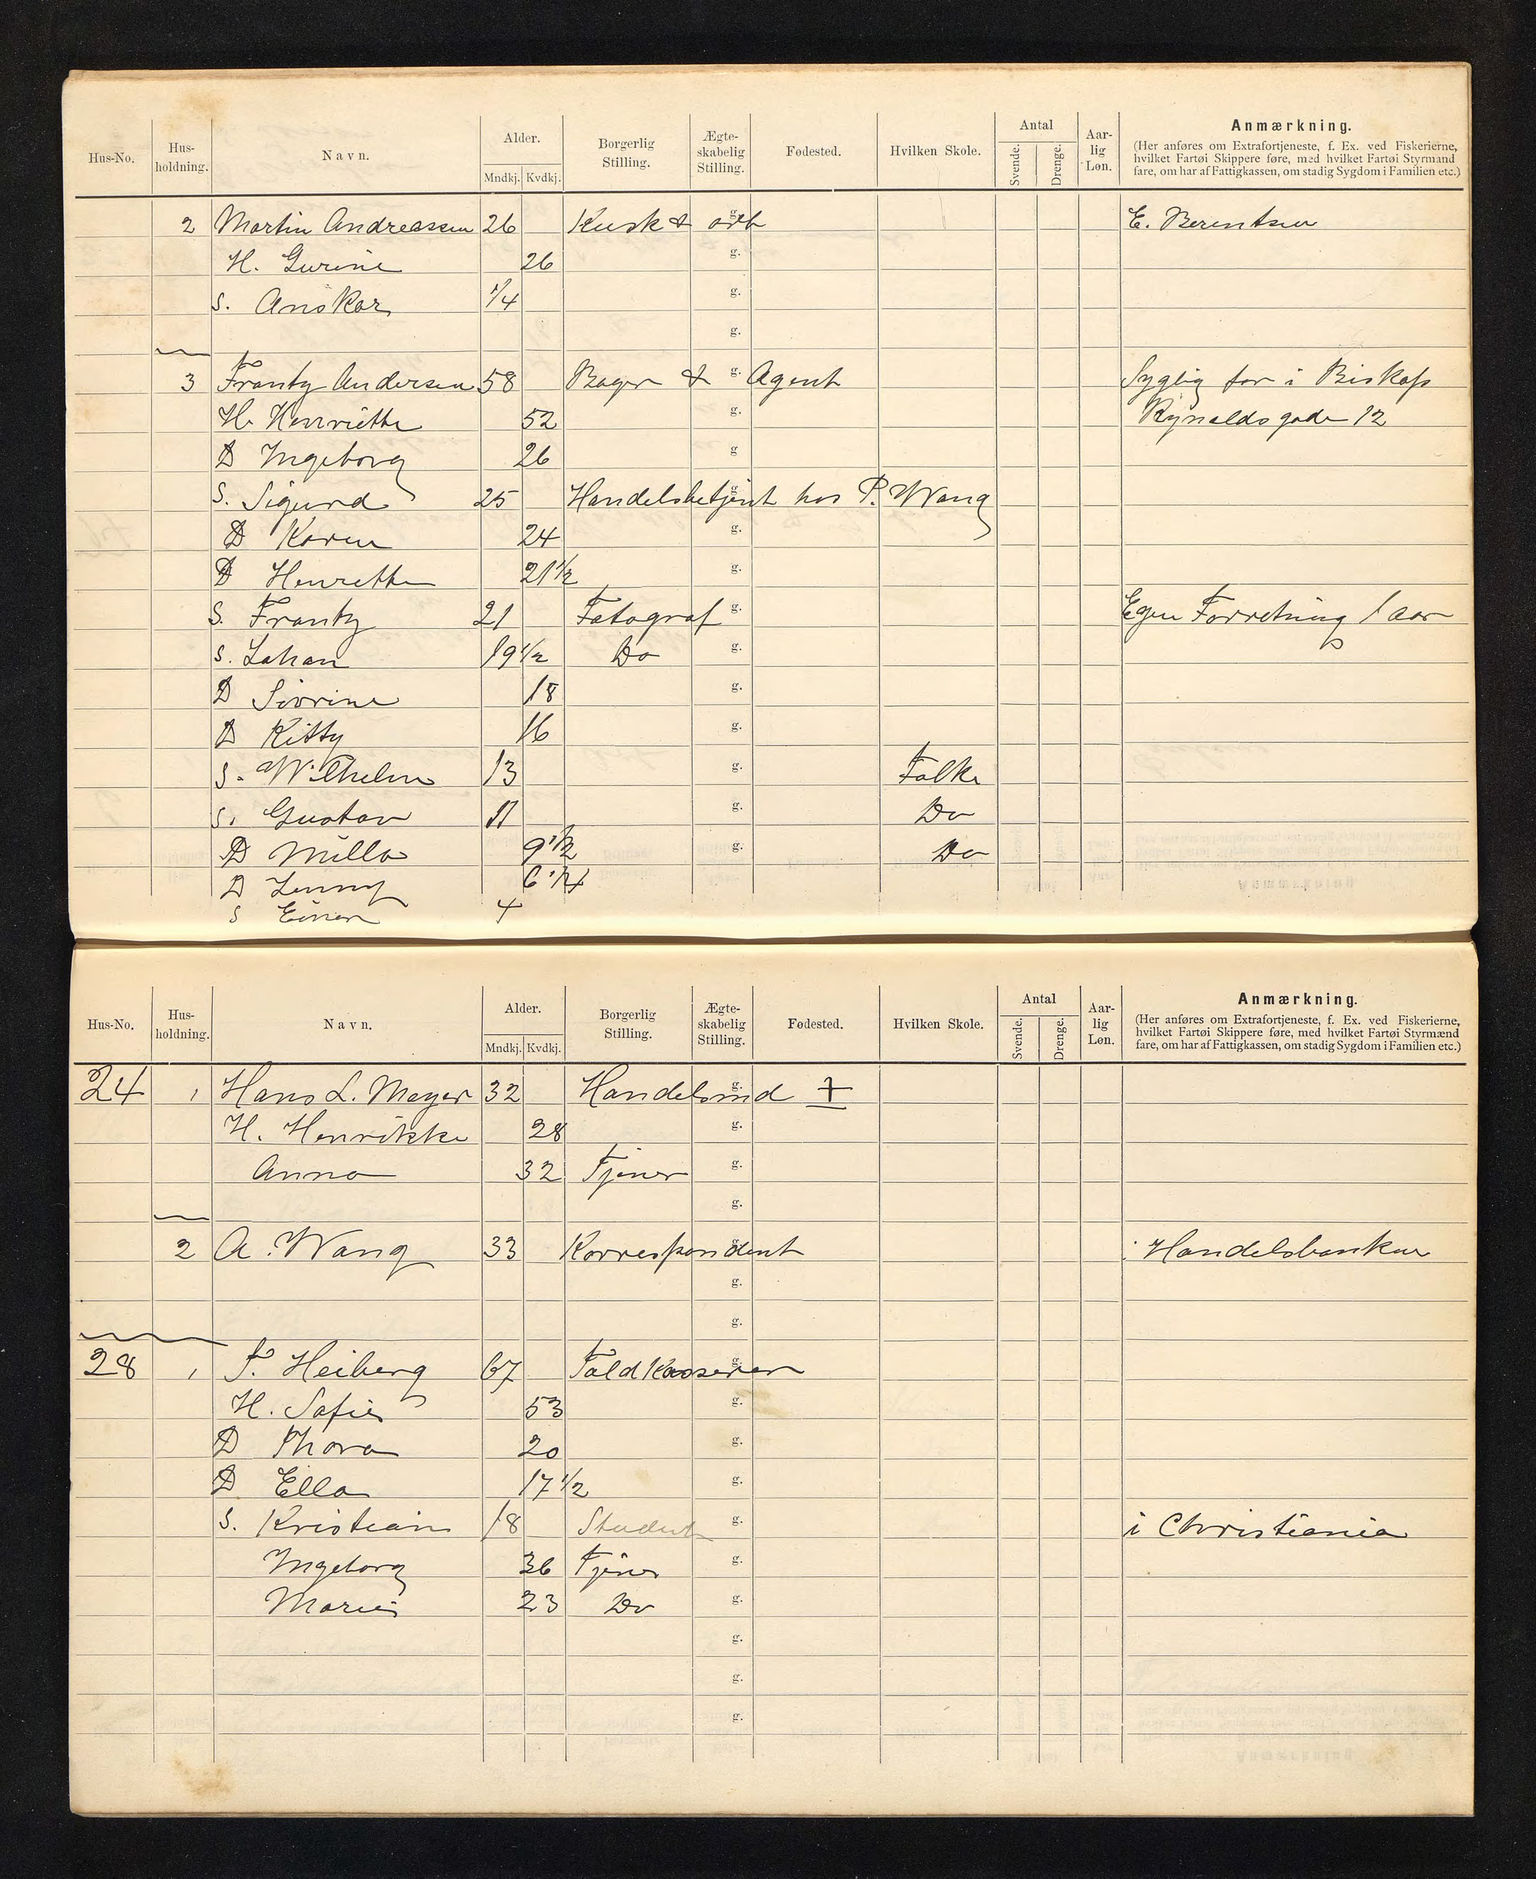 Hus-No. Hus-holdning. Navn. Alder. Mndkj. Kvdkj. Borgerlig Stilling. Ægte-skabelig Stilling. Fødested. Hvilken Skole. Antal Svende. Drenge. Aar-lig Løn. Anmærkning.
(Her anføres om Extrafortjeneste, f. Ex. ved Fiskerierne,
hvilket Fartøi Skippere føre, med hvilket Fartøi Styrmænd
fare, om har af Fattigkassen, om stadig Sygdom i Familien etc.)
2 Martin Andreassen 26 Kusk & arb g. E. Berentsen
H. Gurine 26 g.
S. Anskar 1/4 g.
g.
3 Frantz Andersen 58 Bager & g. Agent Syglig far i Biskop
H. Henriette 52 g. Rynaldsgade 12
D Ingeborg 26 g
S. Sigurd 25 Handelsbetjent hos P. Wang g.
D Karen 24 g.
D Henrette 21 1/2 g.
S. Frantz 21 Fotograf g. Egen Forretning 1 aar
S. Johan 19 1/2 Do g.
D Sivrine 18 g.
D Kitty 16 g.
S. Wilhelm 13 g. Folke
S. Gustav 11 g. Do
D Milla 9 1/2 g. Do
D Jenny 6 1/4
S Einar 4
Hus-No. Hus-holdning. Navn. Alder. Mndkj. Kvdkj. Borgerlig Stilling. Ægte-skabelig Stilling. Fødested. Hvilken Skole. Antal Svende. Drenge. Aar-lig Løn. Anmærkning.
(Her anføres om Extrafortjeneste, f. Ex. ved Fiskerierne,
hvilket Fartøi Skippere føre, med hvilket Fartøi Styrmænd
fare, om har af Fattigkassen, om stadig Sygdom i Familien etc.)
24 1 Hans L. Meyer 32 Handelsmd g.
H. Henrikke 28 g.
Anna 32 Tjener g.
g.
2 A. Wang 33 Korrespondent g. i Handelsbanken
g.
g.
28 1 T. Heiberg 67 Toldkasserer g.
H. Sofie 53 g.
D Thora 20 g.
D Ella 17 1/2 g.
S. Kristian 18 Student g. i Christiania
Ingeborg 36 Tjener g.
Marie 23 Do g.
g.
g.
g.